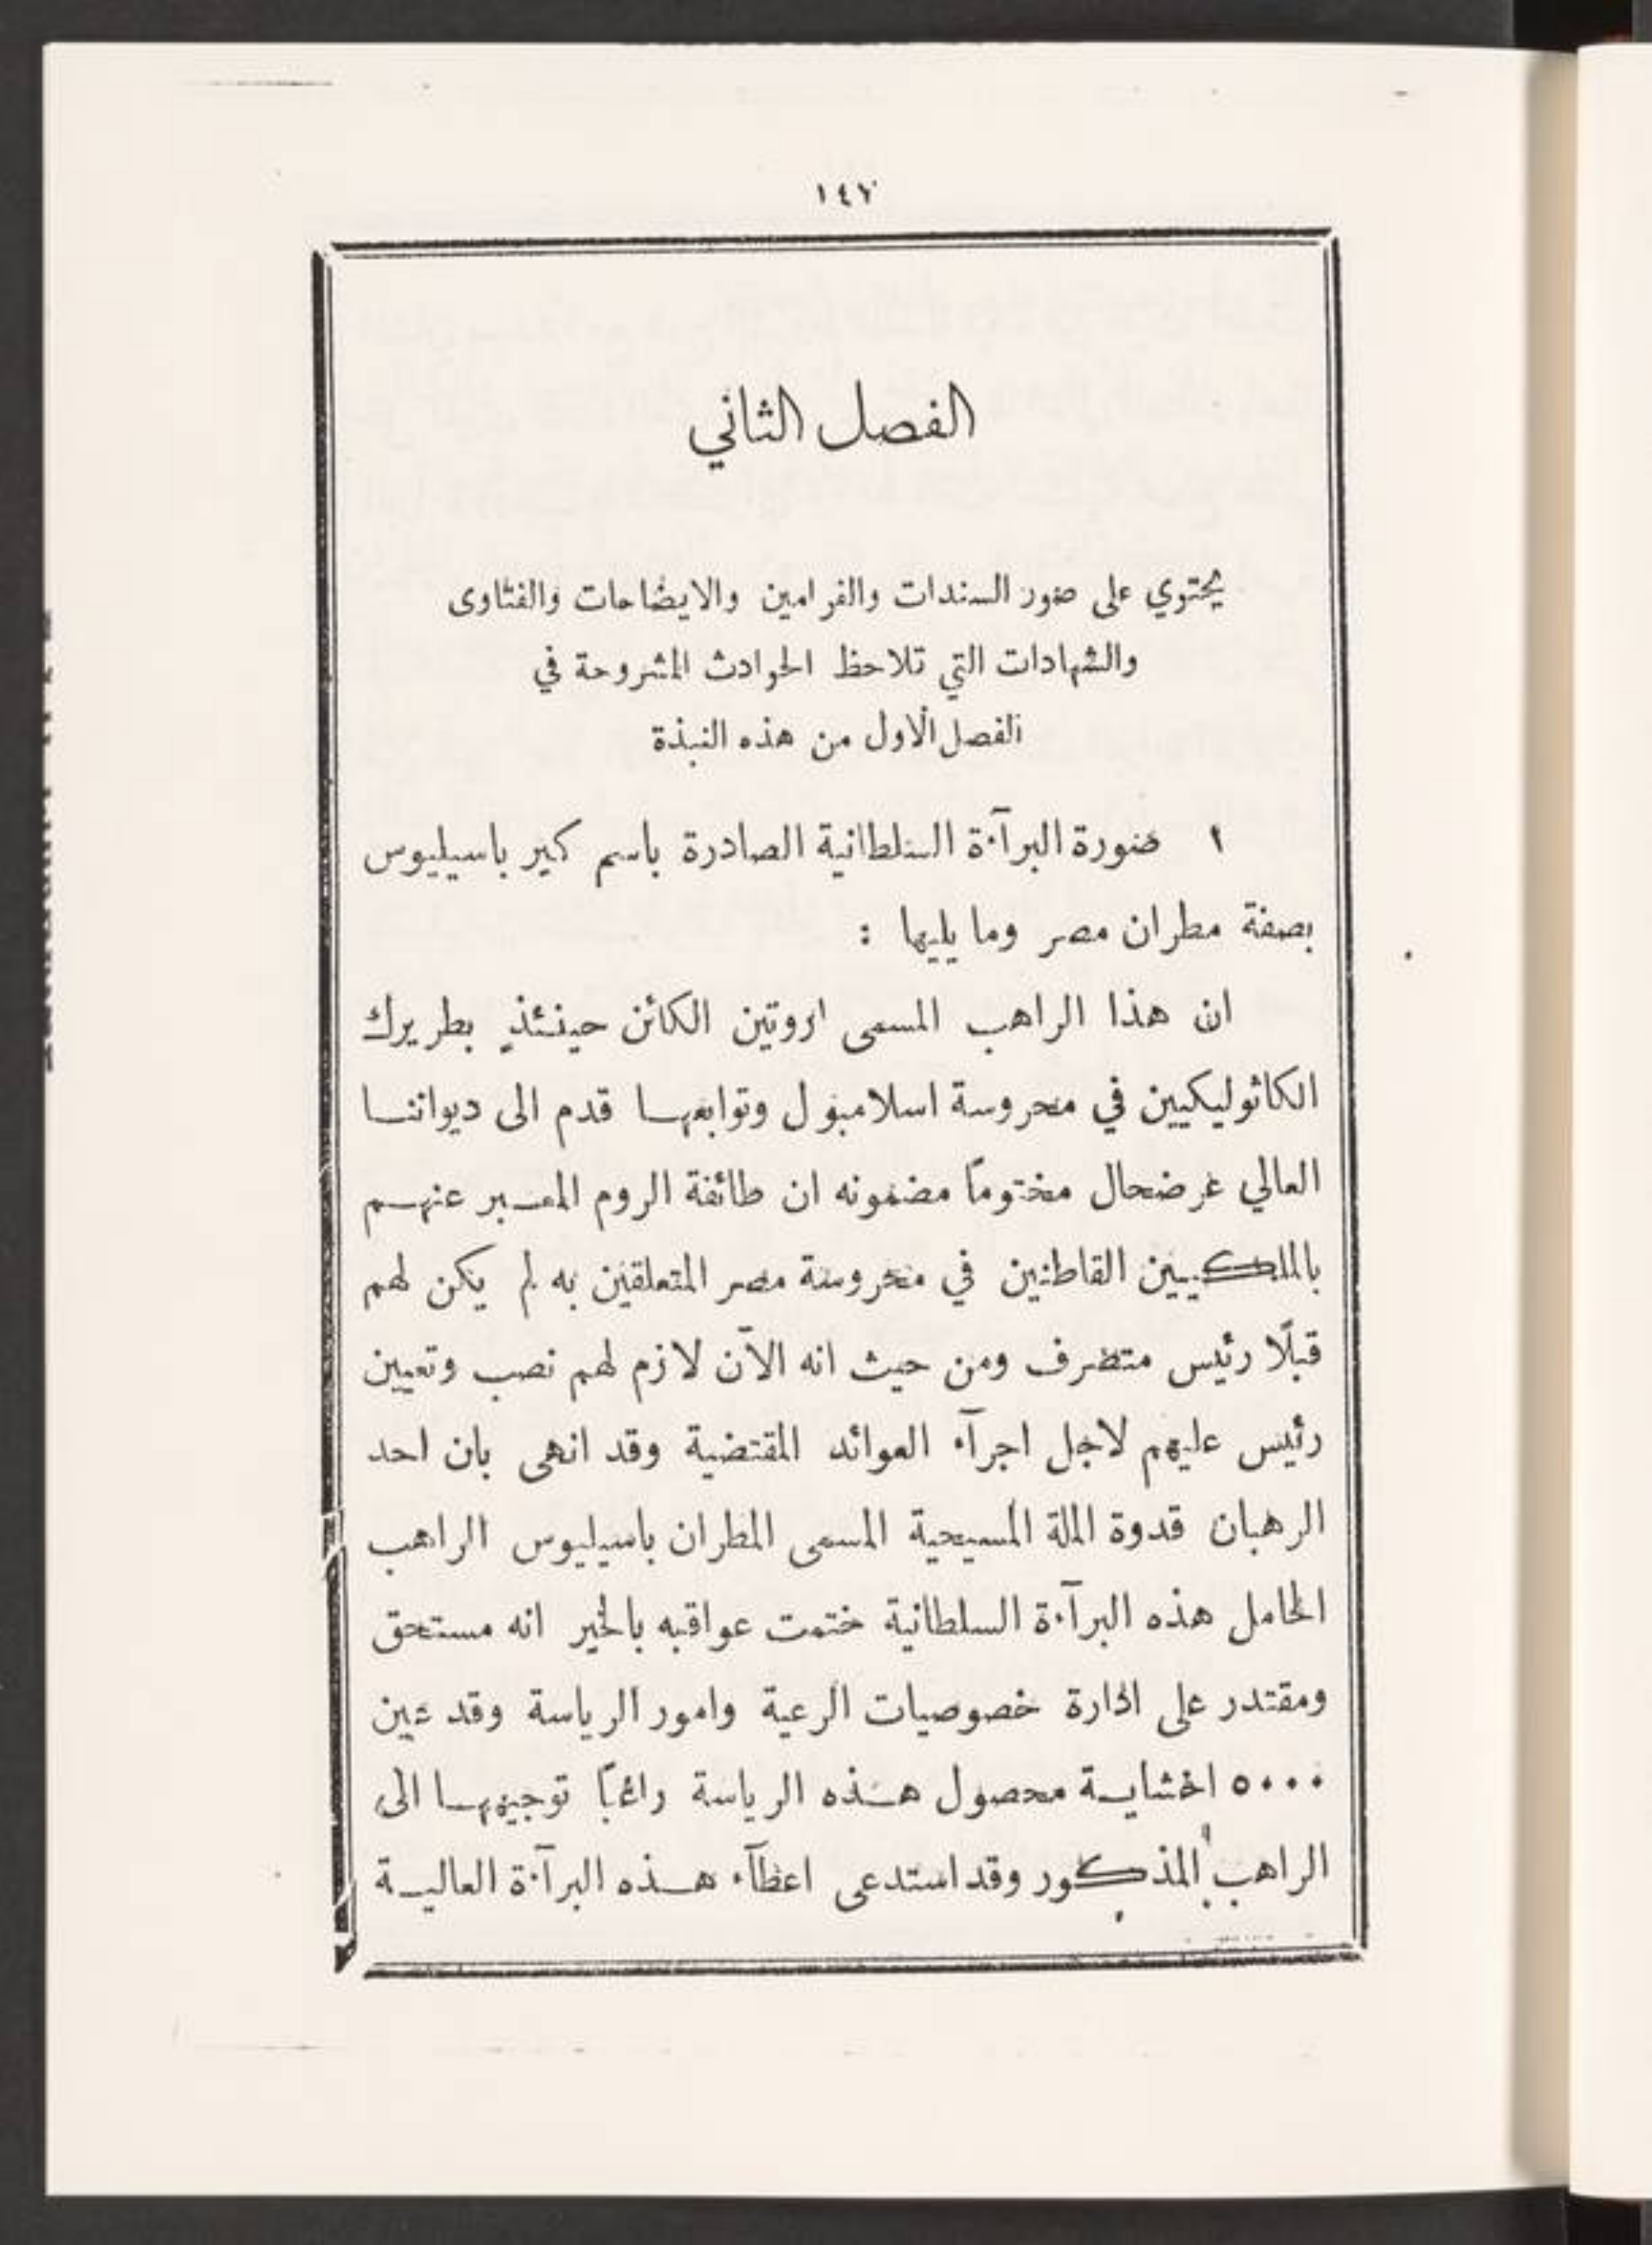 ١٤٧
الفصل الثاني
يحتوي على صور السندات والفرامين والايضاحات والفتاوى
والشهادات التي تلاحظ الحوادث المشروحة في
الفصل الاول من هذه النبذة
١ صورة البرآءة السلطانية الصادرة باسم كير باسيليوس
بصفة مطران مصر وما يليها :
ان هذا الراهب المسمى اروتين الكائن حينئذٍ بطريرك
الكاثوليكيين في محروسة اسلامبول وتوابعها قدم الى ديواننا
العالي عرضحال مختوماً مضمونه ان طائفة الروم المعبر عنهم
بالملكيين القاطنين في محروسة مصر المتعلقين به لم يكن لهم
قبلًا رئيس متصرف ومن حيث انه الآن لازم لهم نصب وتعيين
رئيس عليهم لاجل اجرآء العوائد المقتضية وقد انهى بان احد
الرهبان قدوة الملة المسيحية المسمى المطران باسيليوس الراهب
الحامل هذه البرآءة السلطانية ختمت عواقبه بالخير انه مستحق
ومقتدر على ادارة خصوصيات الرعية وامور الرياسة وقد عين
٥٠٠٠ اخشاية محصول هذه الرياسة راغباً توجيهها الى
الراهب المذكور وقد استدعى اعطآء هذه البرآءة العالية